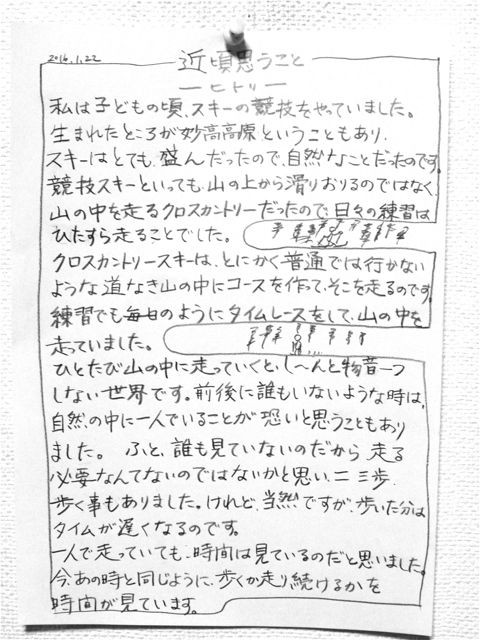 2016.1.22
近頃思うこと
ーヒトリー
私は子どもの頃、スキーの競技をやっていました。
生まれたところが妙高高原ということもあり、
スキーはとても、盛んだったので、自然なことだったのです。
競技スキーといっても、山の上から滑りおりるのではなく、
山の中を走るクロスカントリーだったので、日々の練習は
ひたすら走ることでした。
クロスカントリースキーは、とにかく普通では行かない
ような道なき山の中にコースを作って、そこを走るのです。
練習でも毎日のようにタイムレースをして、山の中を
走っていました。
ひとたび山の中に走っていくと、し〜んと物音一つ
しない世界です。前後に誰もいないような時は、
自然の中に一人でいることが恐いと思うこともあり
ました。 ふと、誰も見ていないのだから 走る
必要なんてないのではないかと思い、二三歩、
歩く事もありました。けれど、当然ですが、歩いた分は
タイムが遅くなるのです。
一人で走っていても、時間は見ているのだと思いました。
今、あの時と同じように、歩くか走り続けるかを
時間が見ています。